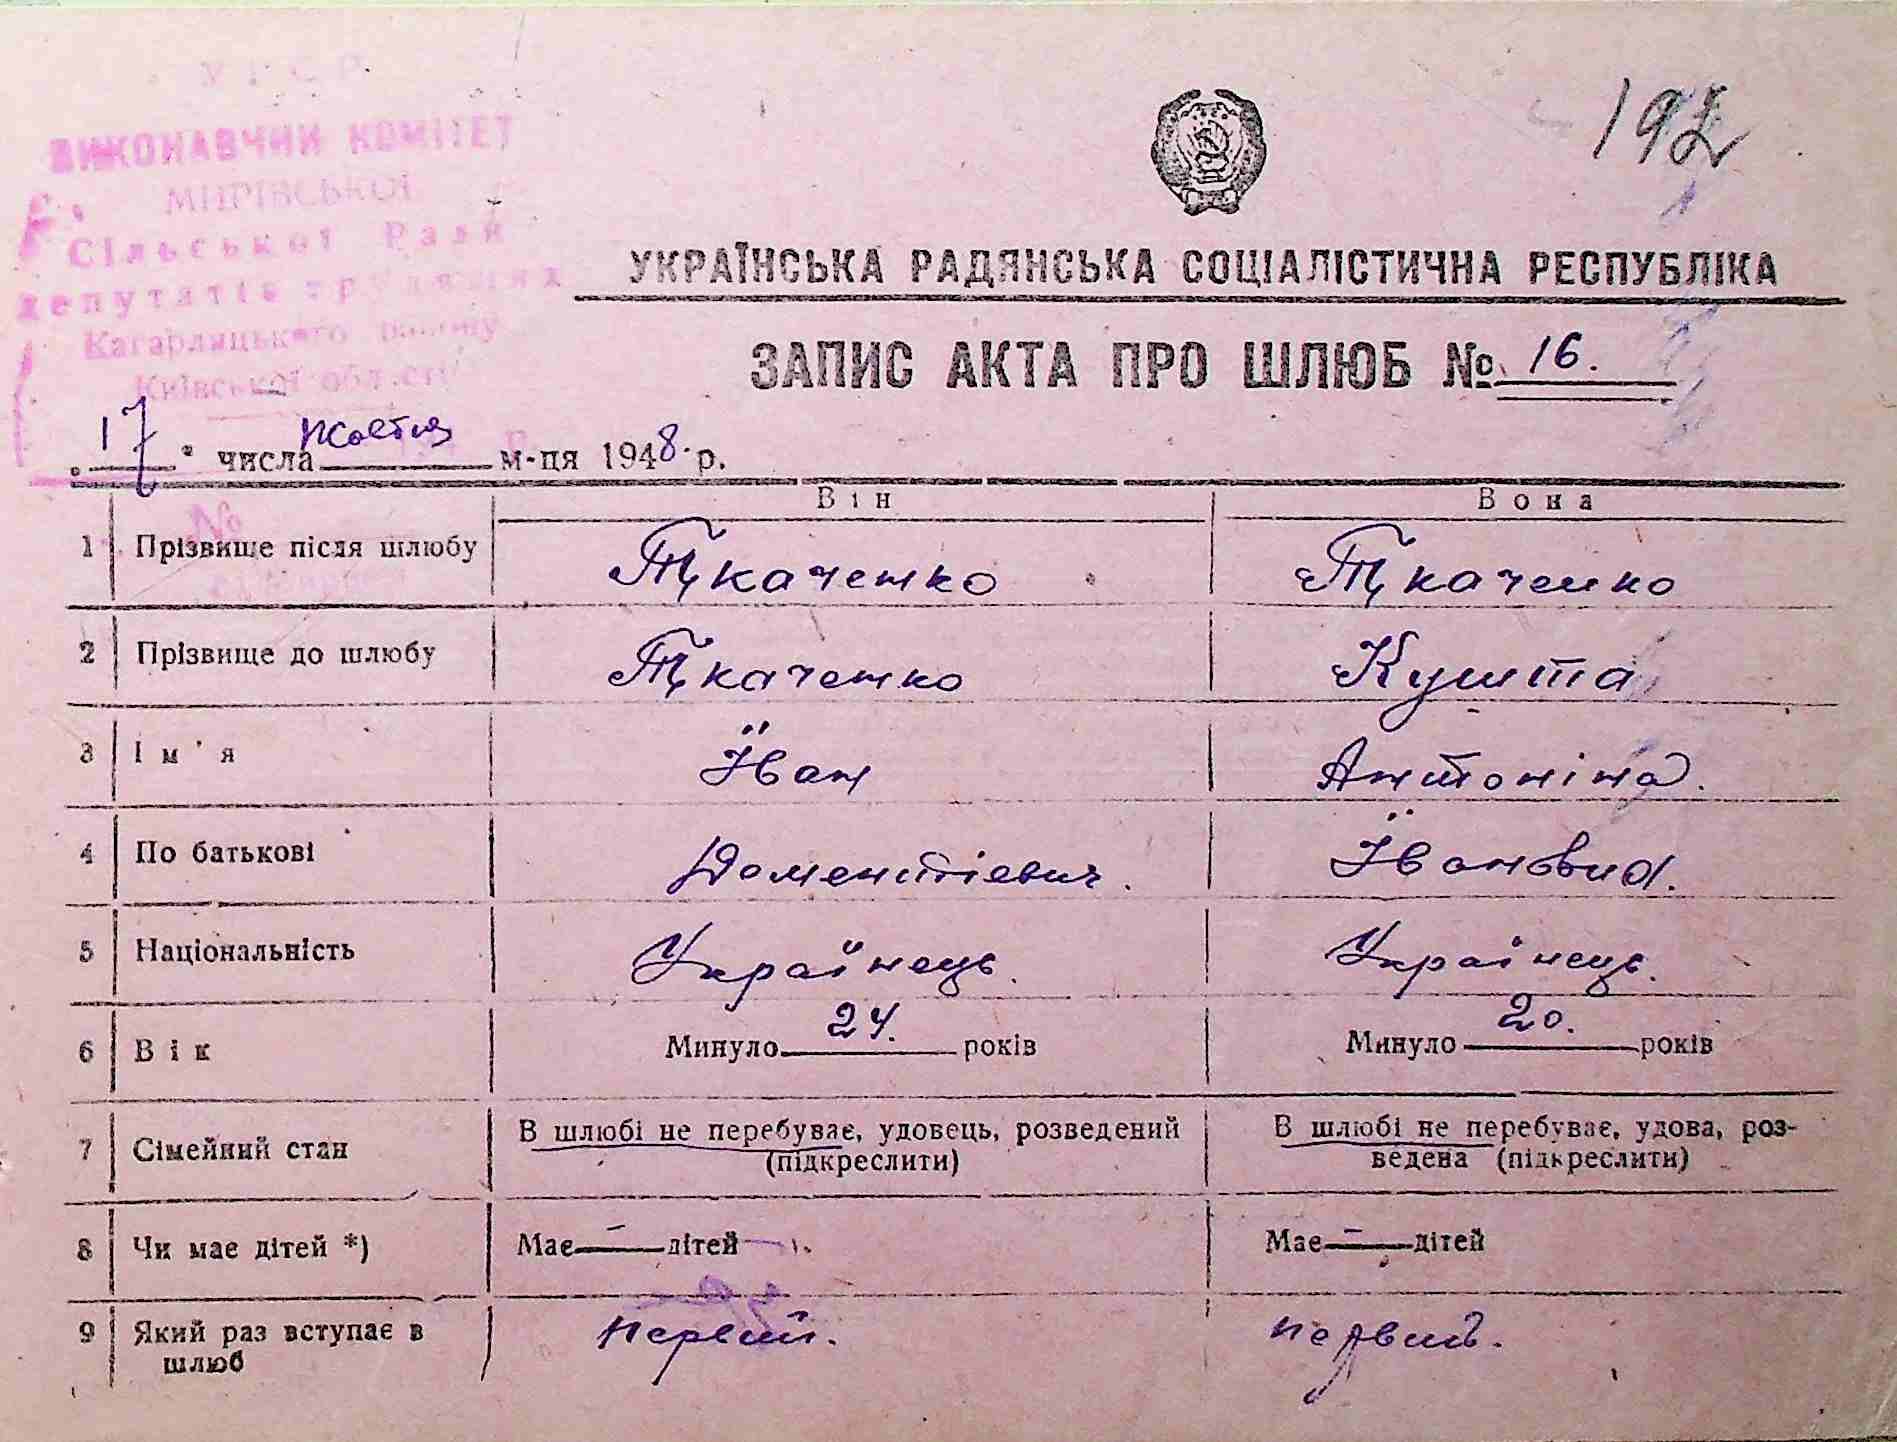 УРСР
ВИКОНАВЧИЙ КОМІТЕТ
МИРІВСЬКОЇ
Сільської Ради
депутатів трудящих
Кагарлицького району
Київської області
192
УКРАЇНСЬКА РАДЯНСЬКА СОЦІАЛІСТИЧНА РЕСПУБЛІКА
ЗАПИС АКТА ПРО ШЛЮБ № 16.
"17" числа Жовтня м-ця 1948 р.
Він Вона
1 Прізвище після шлюбу Ткаченко Ткаченко
2 Прізвище до шлюбу Ткаченко Кушта
3 Ім'я Їван Антоніна.
4 По батькові Доментієвич. Ївановна.
5 Національність Українець. Українець.
6 Вік Минуло 24. років Минуло 20. років
7 Сімейний стан В шлюбі не перебуває, удовець, розведений В шлюбі не перебуває, удова, роз-
(підкреслити) ведена (підкреслити)
8 Чи має дітей *) Має — дітей Має — дітей
9 Який раз вступає в первий. первий.
шлюб